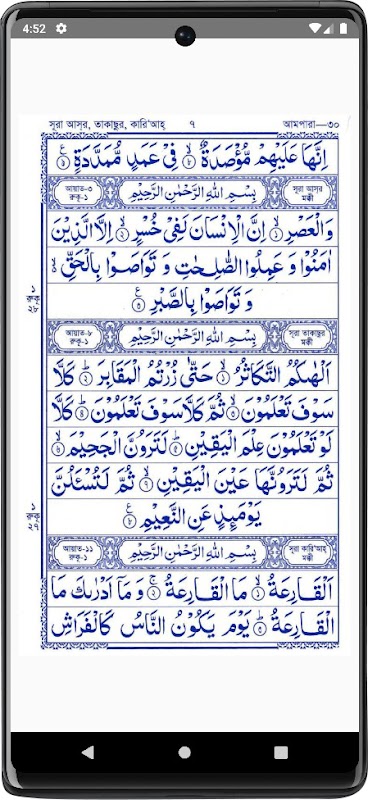 4:52
সূরা আস্‌র, তাকাছুর, কারি'আহ্ ৭ আমপারা—৩০
اِنَّهَا عَلَيْهِمْ مُّؤْصَدَةٌ ۙ فِيْ عَمَدٍ مُّمَدَّدَةٍ
আয়াত-৩ রুকূ-১ بِسْمِ اللهِ الرَّحْمٰنِ الرَّحِيْمِ সূরা আস্‌র মক্কী
وَالْعَصْرِ ۙ اِنَّ الْاِنْسَانَ لَفِيْ خُسْرٍ ۙ اِلَّا الَّذِيْنَ
اٰمَنُوْا وَ عَمِلُوا الصّٰلِحٰتِ وَ تَوَاصَوْا بِالْحَقِّ ۙ
وَ تَوَاصَوْا بِالصَّبْرِ
১
রুকূ
২৮
আয়াত-৮ রুকূ-১ بِسْمِ اللهِ الرَّحْمٰنِ الرَّحِيْمِ সূরা তাকাছুর মক্কী
اَلْهٰىكُمُ التَّكَاثُرُ ۙ حَتّٰى زُرْتُمُ الْمَقَابِرَ ؕ كَلَّا
سَوْفَ تَعْلَمُوْنَ ۙ ثُمَّ كَلَّا سَوْفَ تَعْلَمُوْنَ ؕ كَلَّا
لَوْ تَعْلَمُوْنَ عِلْمَ الْيَقِيْنِ ؕ لَتَرَوُنَّ الْجَحِيْمَ ۙ
ثُمَّ لَتَرَوُنَّهَا عَيْنَ الْيَقِيْنِ ۙ ثُمَّ لَتُسْـَٔلُنَّ
يَوْمَىِٕذٍ عَنِ النَّعِيْمِ
১
রুকূ
২৭
আয়াত-১১ রুকূ-১ بِسْمِ اللهِ الرَّحْمٰنِ الرَّحِيْمِ সূরা কারি'আহ্ মক্কী
اَلْقَارِعَةُ ۙ مَا الْقَارِعَةُ ۚ وَ مَاۤ اَدْرٰىكَ مَا
الْقَارِعَةُ ؕ يَوْمَ يَكُوْنُ النَّاسُ كَالْفَرَاشِ